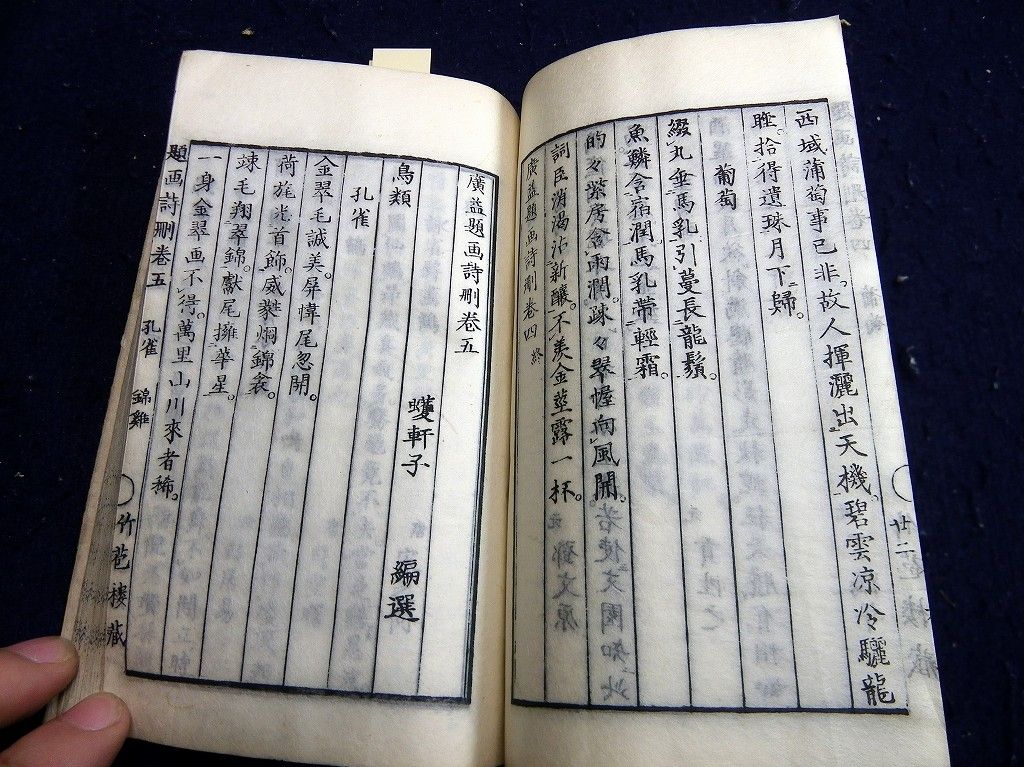 西域蒲萄事已非。故人揮灑出天機。碧雲凉冷驪龍
睡。拾得遺珠月下歸。
葡萄
綴丸垂馬乳引蔓長龍鬚。
魚鱗含宿潤。馬乳帯輕霜。
的々紫房含雨潤。疎々翠幄向風開。若使文園知此
詞臣消渴沾新釀。不羨金莖露一杯。 元 鄧文原
廣益題画詩刪巻四 終
廿二
廣益題画詩刪巻五
軒子 編選
鳥類
孔雀
金翠毛誠美。屏幃尾忽開。
荷旄光首飾。威㷟烱錦衾。
竦毛翔翠錦。獻尾擁華星。
一身金翠画不得。萬里山川來者稀。
題画詩刪巻五 孔雀 錦雞 竹苞楼蔵